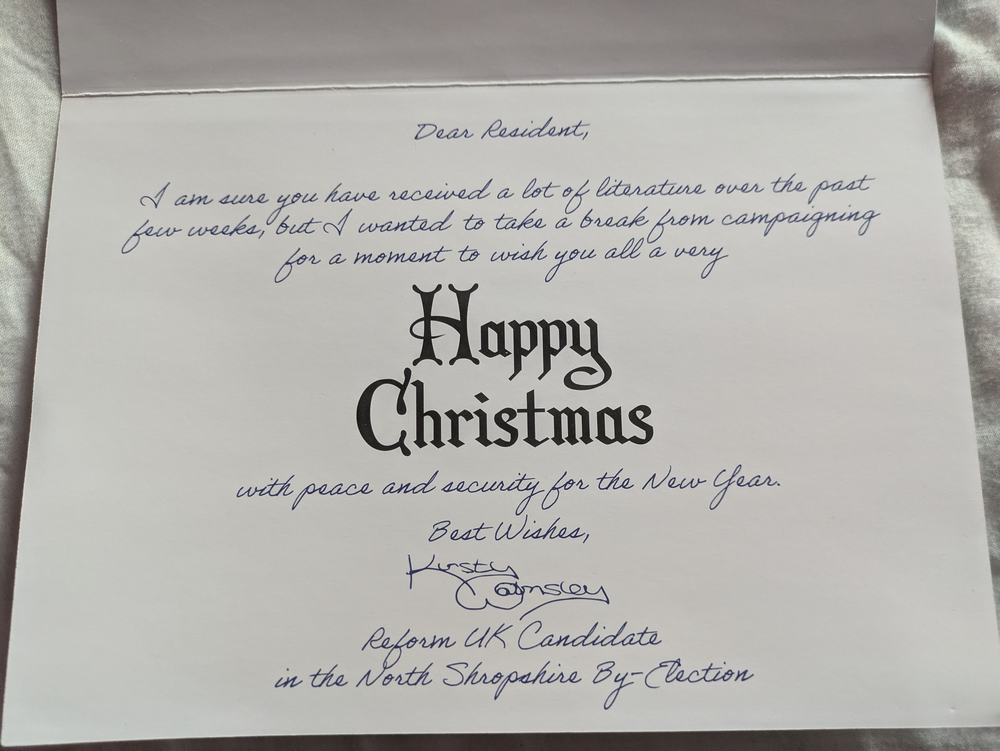 Dear Resident,
I am sure you have received a lot of literature over the past
few weeks, but I wanted to take a break from campaigning
for a moment to wish you all a very
Happy
Christmas
with peace and security for the New Year.
Best Wishes,
Kirsty
Walmsley
Reform UK Candidate
in the North Shropshire By-Election